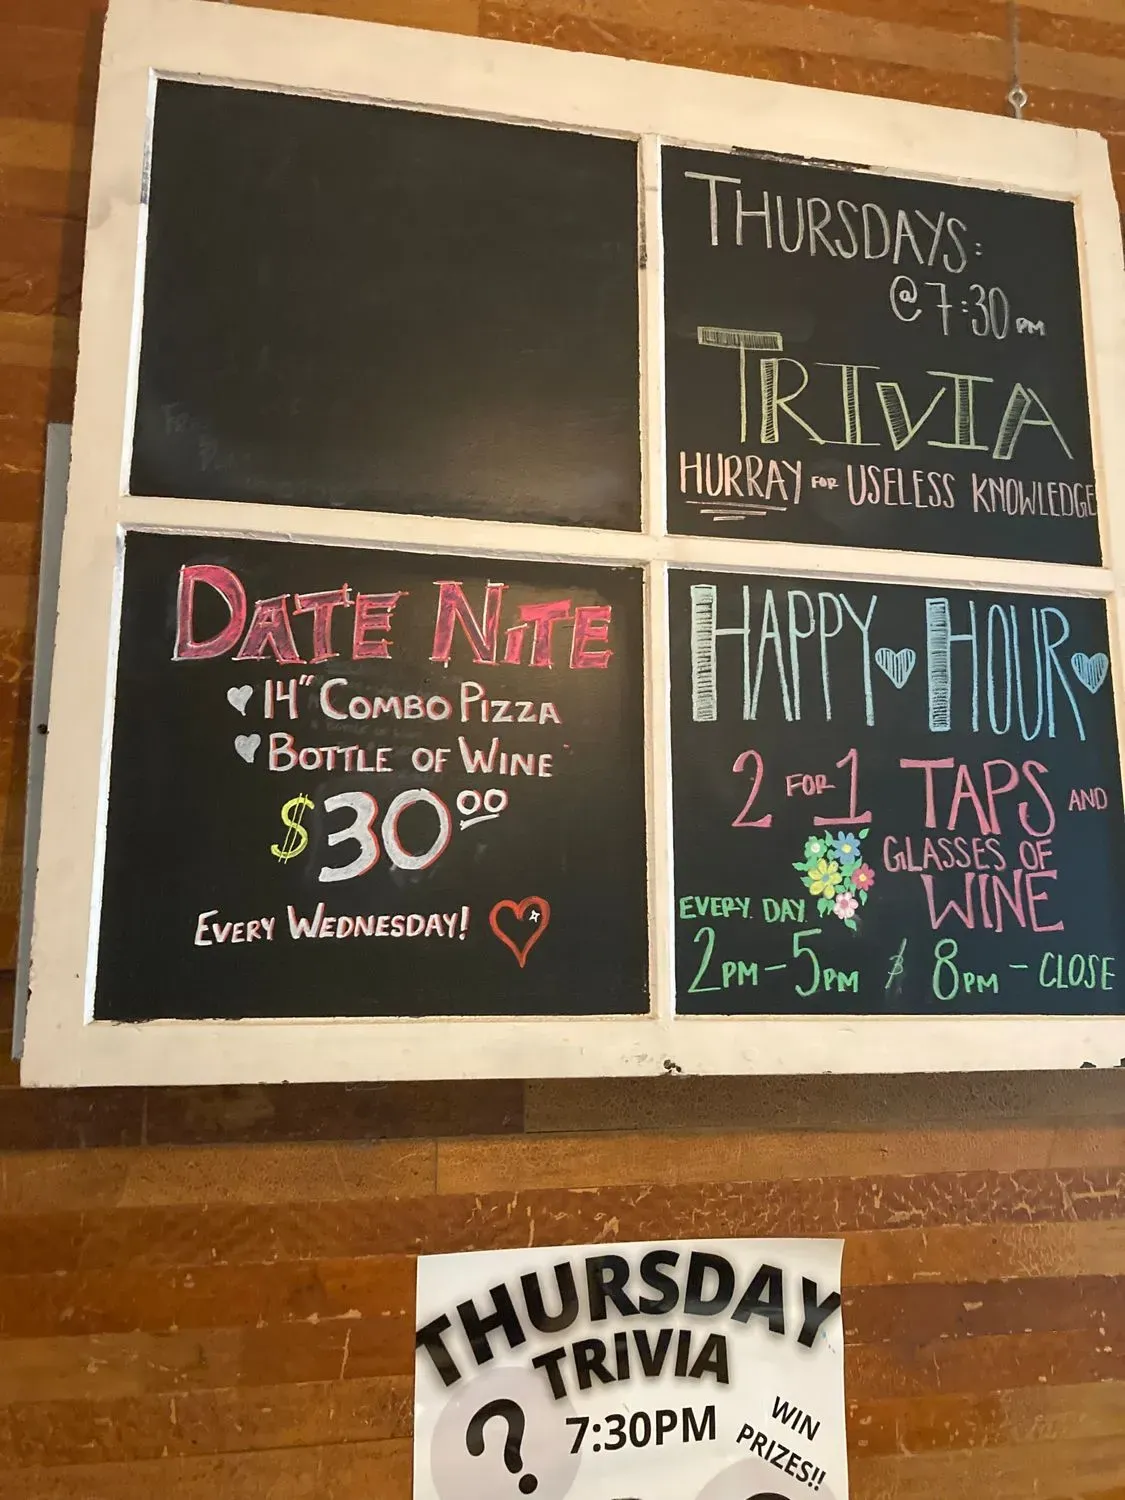 THURSDAYS:
@ 7:30 PM
TRIVIA
HURRAY FOR USELESS KNOWLEDGE
DATE NITE
14" COMBO PIZZA
BOTTLE OF WINE
$30.00
EVERY WEDNESDAY!
HAPPY HOUR
2 FOR 1 TAPS AND
GLASSES OF
WINE
EVERY DAY
2PM - 5PM & 8PM - CLOSE
THURSDAY
TRIVIA
?
7:30PM
WIN
PRIZES!!